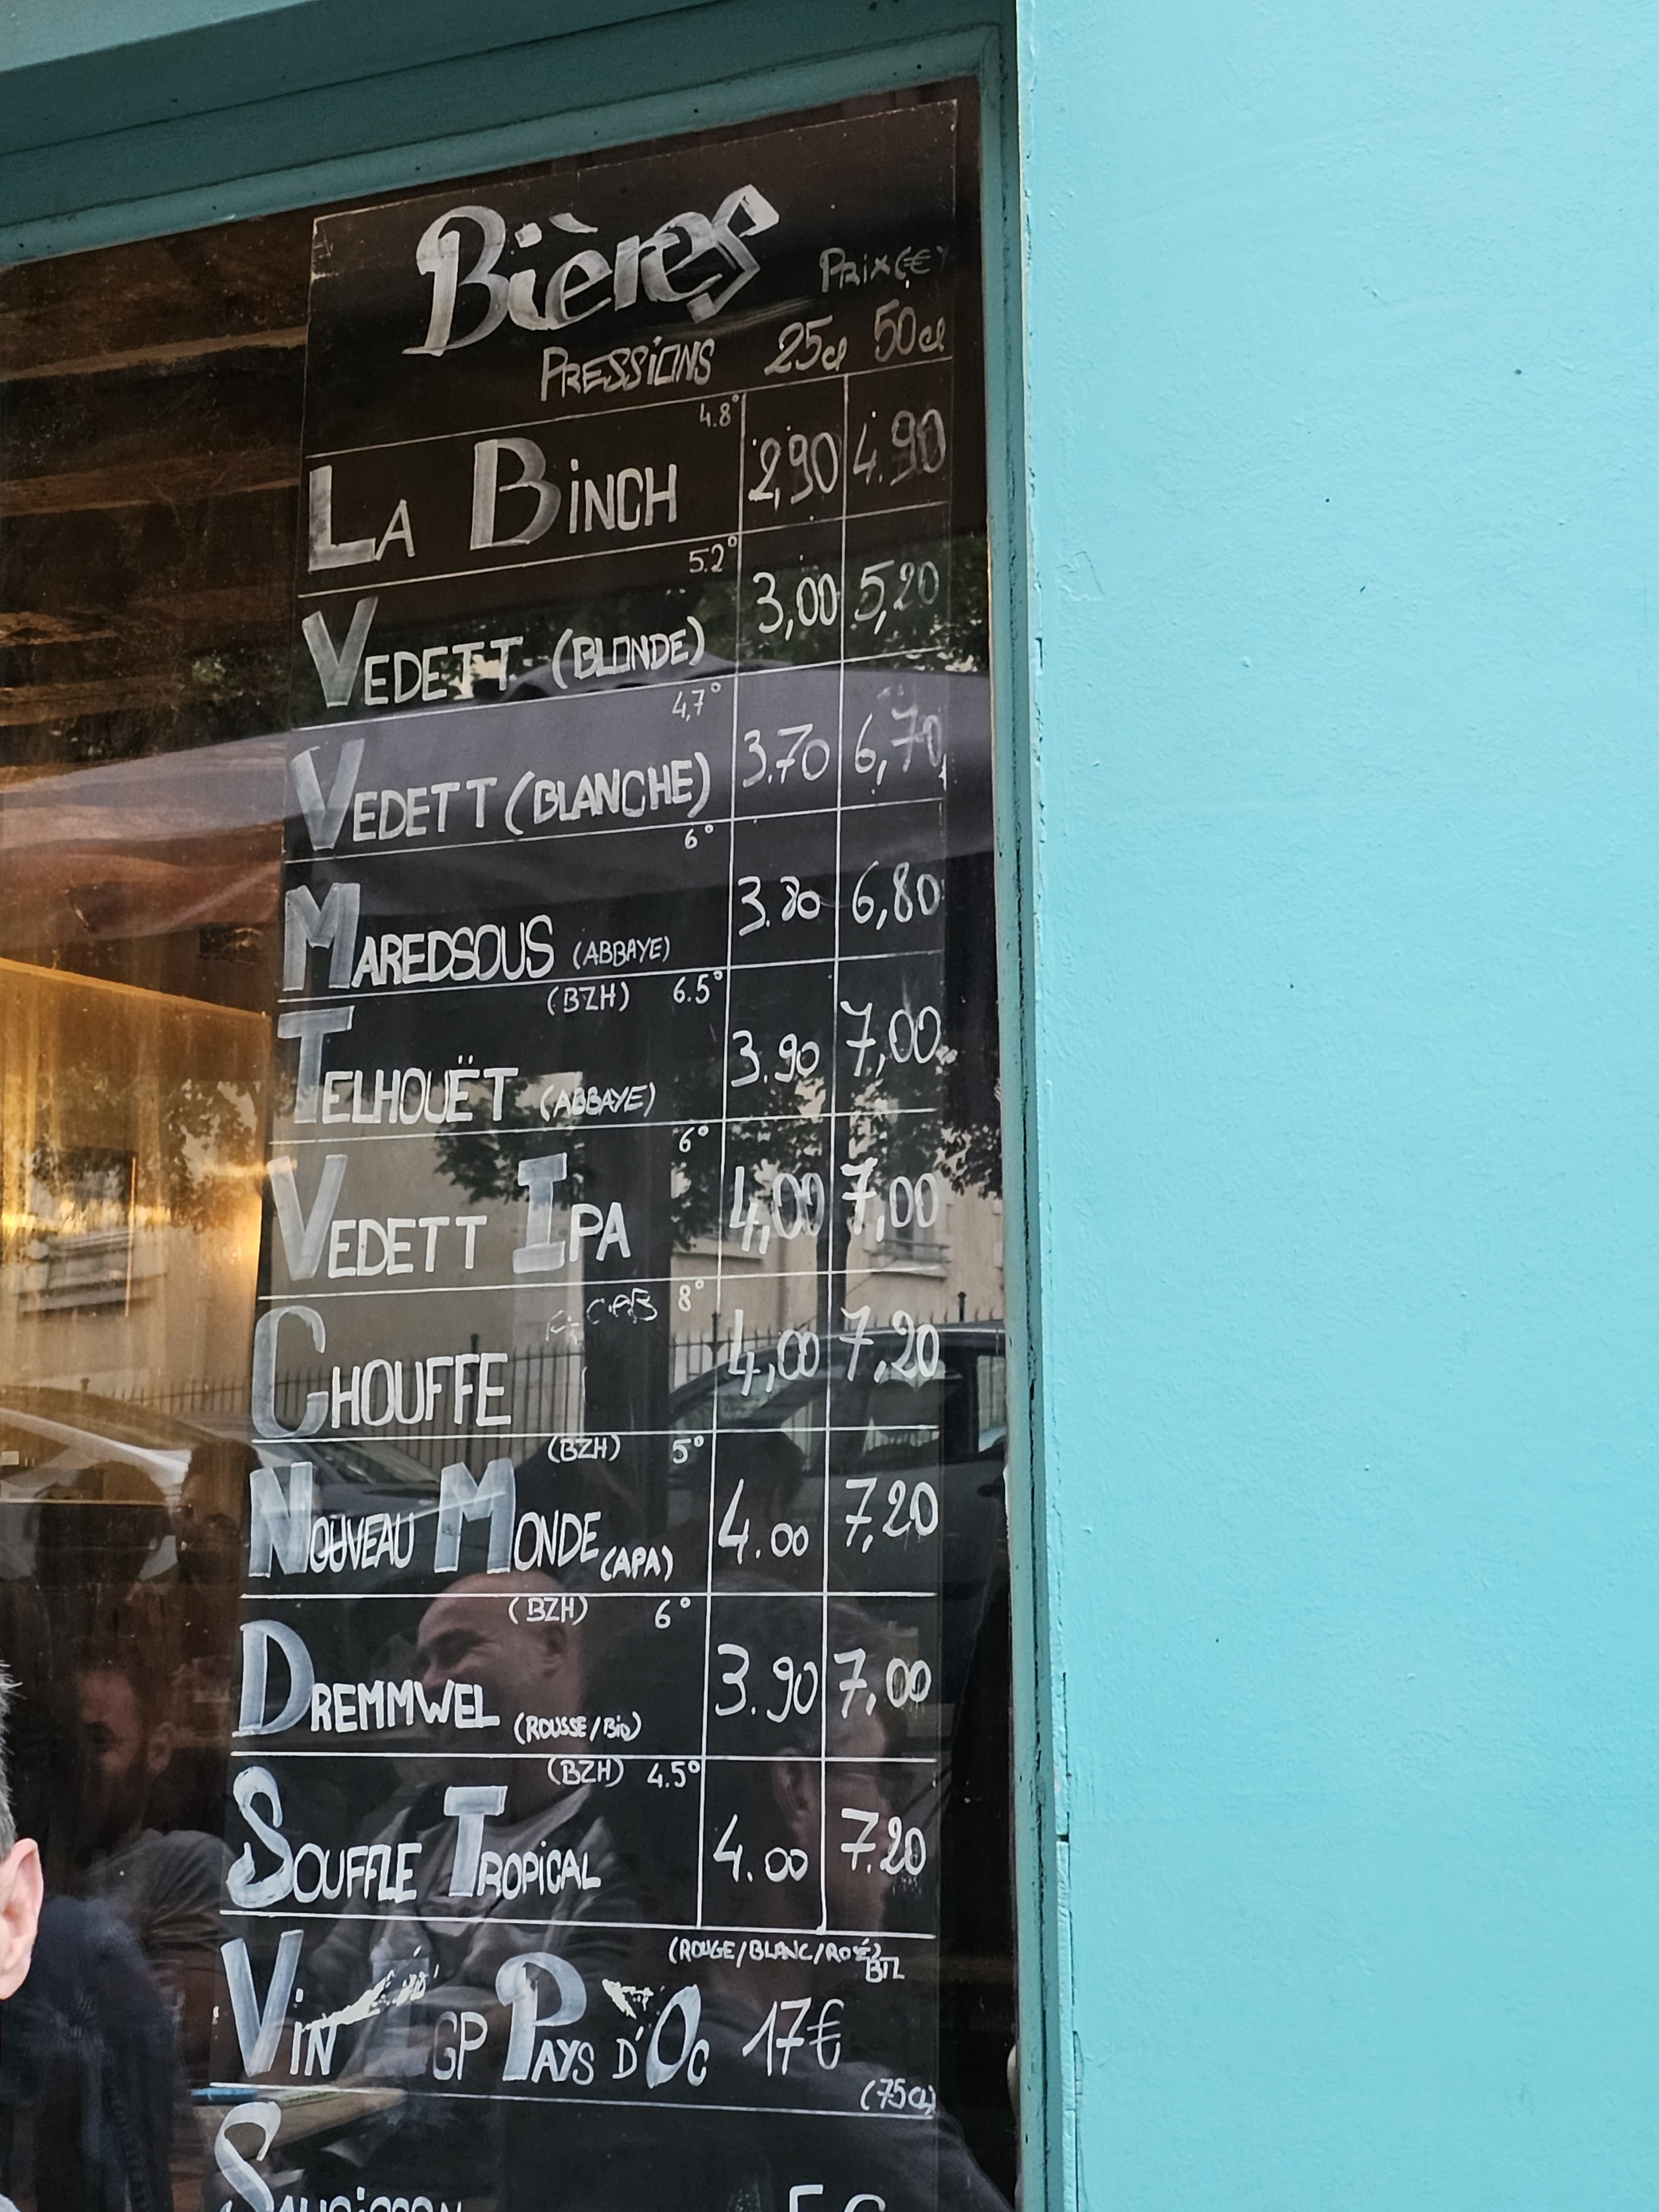 Bières
PRiX (€)
PRESSiONS 25cl 50cl
4.8°
LA BiNCH 2,90 4.90
5.2°
VEDETT (BLONDE) 3,00 5,20
4,7°
VEDETT (BLANCHE) 3.70 6,70
6°
MAREDSOUS (ABBAYE) 3.80 6,80
(BZH) 6.5°
TELHOUËT (ABBAYE) 3.90 7,00
6°
VEDETT IPA 4,00 7,00
8°
CHOUFFE 4,00 7,20
(BZH) 5°
NOUVEAU MONDE (APA) 4.00 7,20
(BZH) 6°
DREMMWEL (ROUSSE/BiO) 3.90 7,00
(BZH) 4.5°
SOUFFLE TROPiCAL 4.00 7.20
(ROUGE/BLANC/ROSÉ)
BTL
ViN IGP PAYS D'OC 17€
(75cl)